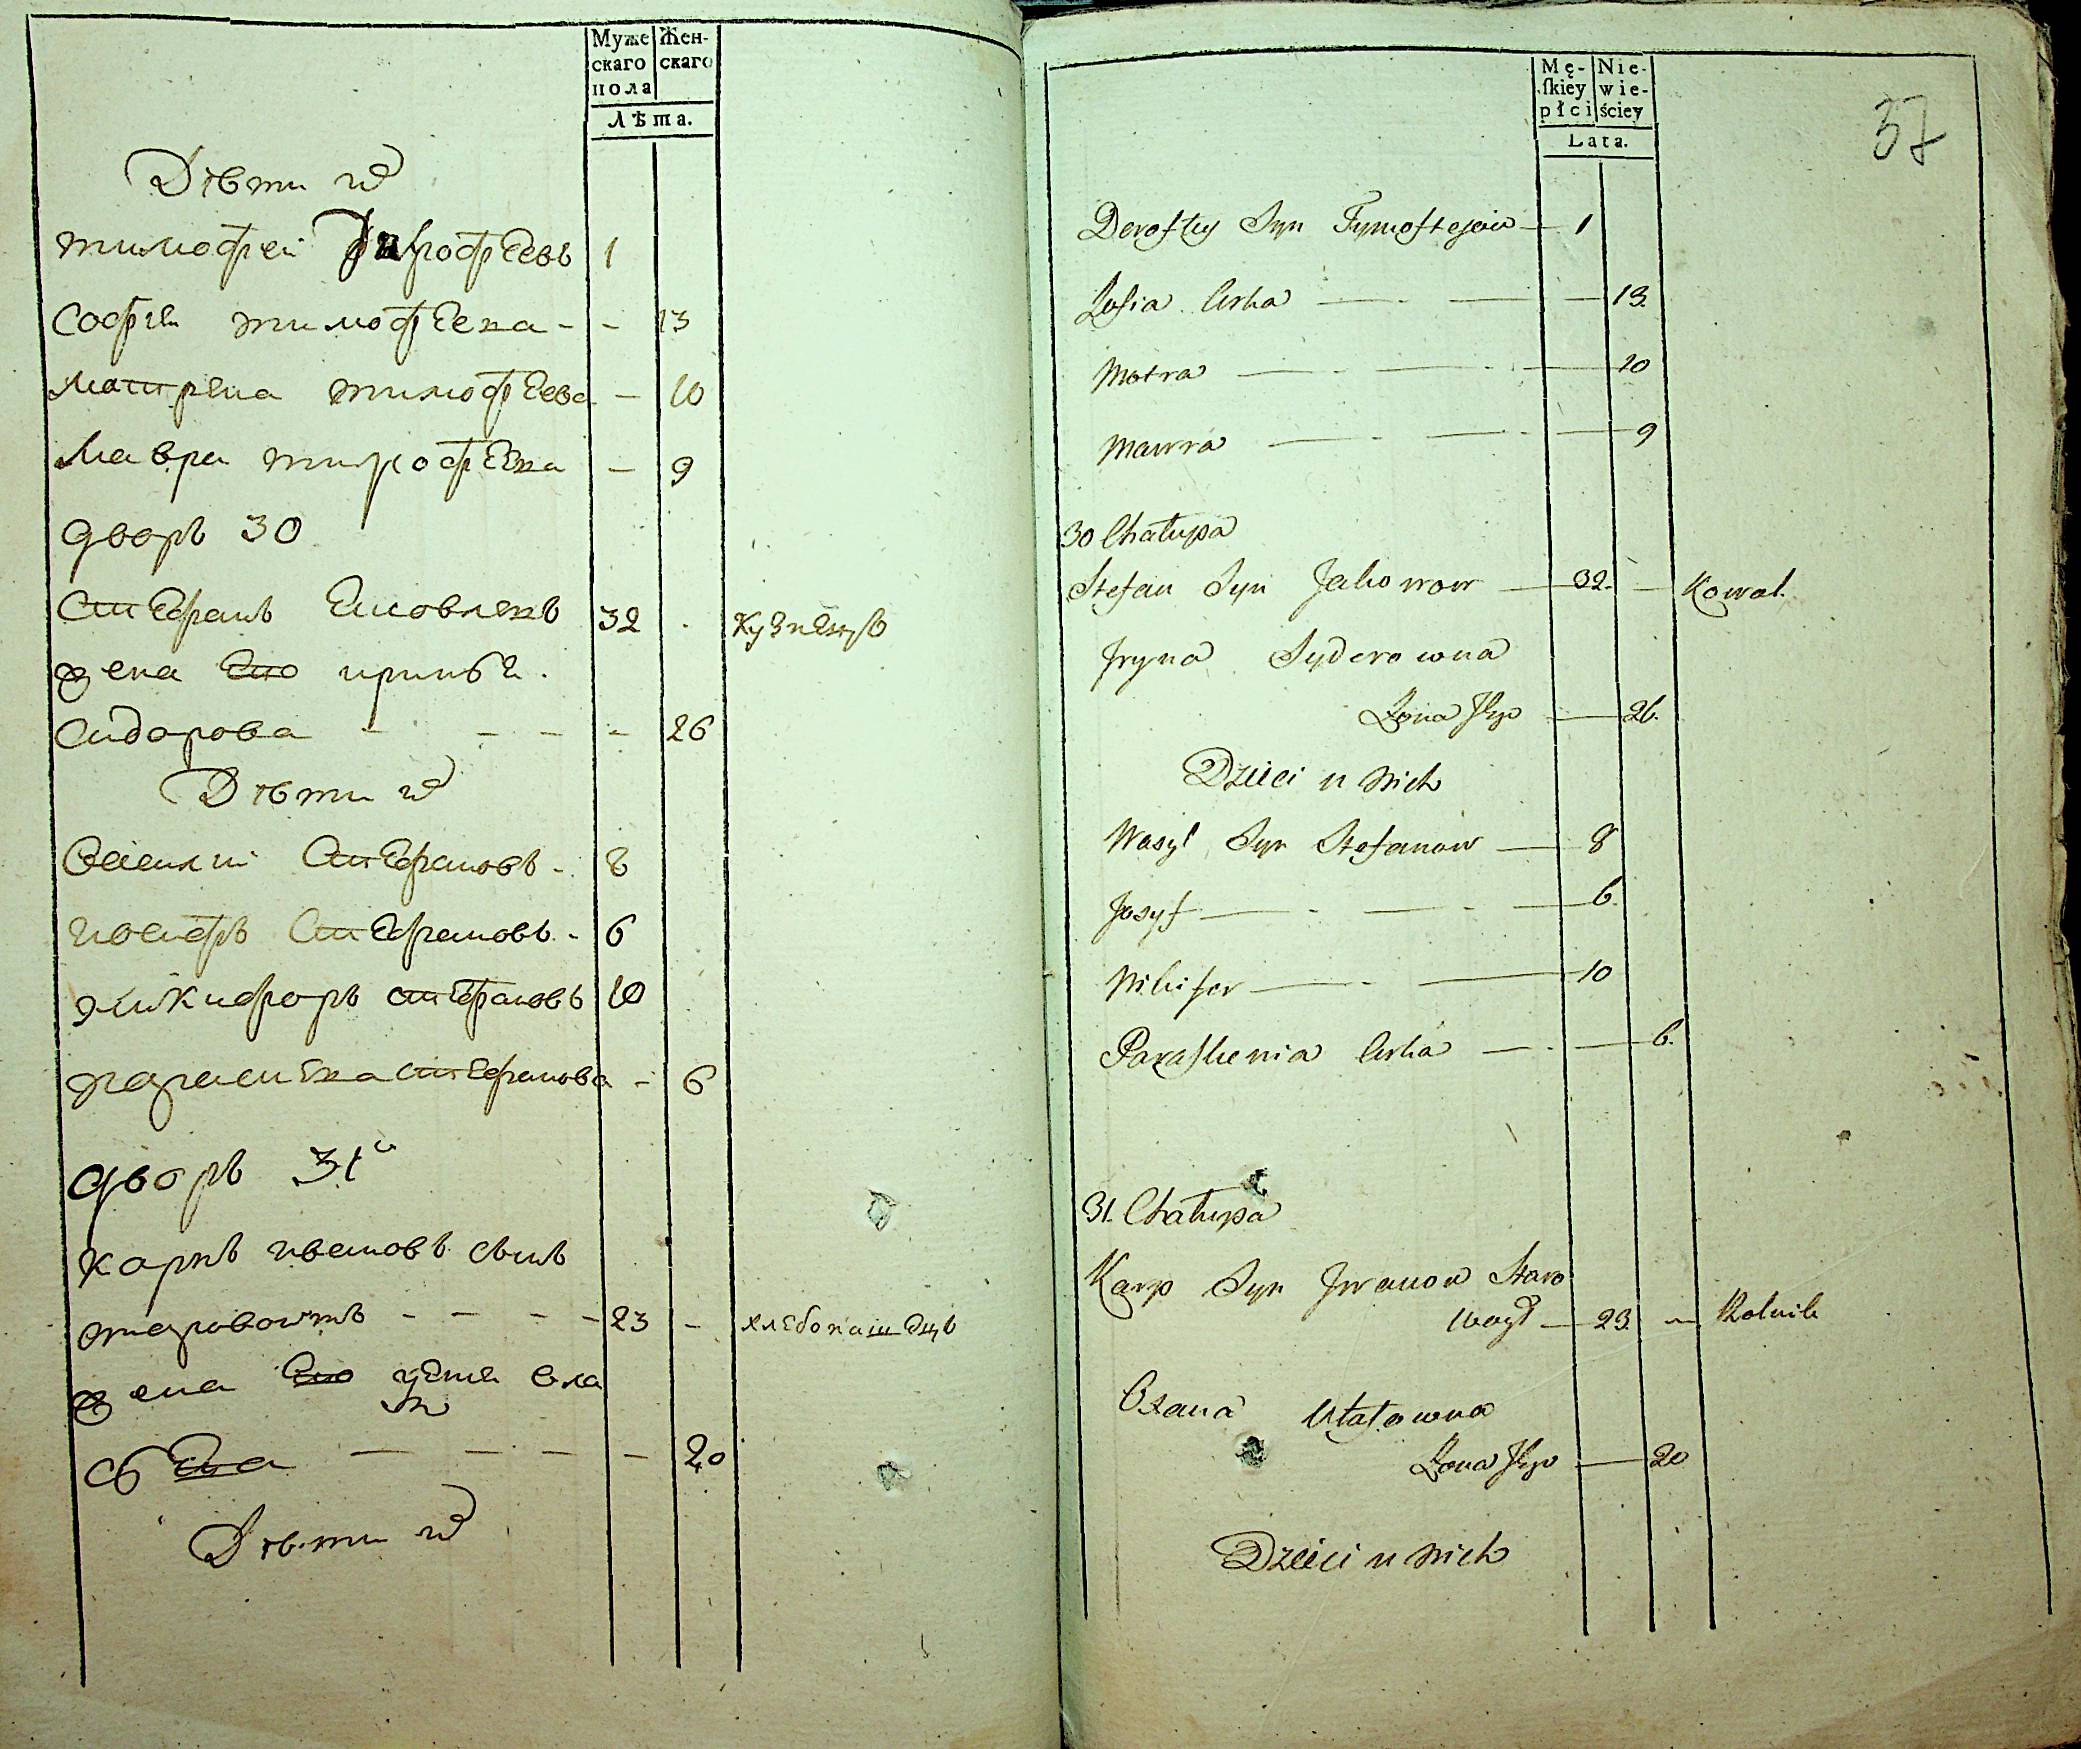 Муже
скаго
пола
Жен-
скаго
Лѣта.
Дѣти ихъ
тимофей
1
софія тимофѣева - - 13
матрена тимофѣева - 10
Мавра тимофѣева - 9
дворъ 30
Стѣфанъ 32 . кузнѣцъ
жена Его
сидорова - - - - 26
Дѣти ихъ
Василий Стѣфановъ - 8
иосифъ Стѣфановъ - 6
никифоръ стѣфановъ 10
парасковѣа стѣфанова - 6
дворъ 31й
карпъ ивановъ сынъ
- - - - 23 - хлѣбопашѣцъ
жена Его
- - - - 20
Дѣти ихъ
Mę-
ſkiey
płci
Nie-
wie-
ściey
Lata.
37
Syn Tymofiejow — 1
Zofia Corka — - — — 13.
Motra — - - — 10
Mawra — — - — 9
30 Chałupa
Stefan Syn Jakowow — 32. — Kowal.
Iryna Syderowna
Żona Jego — 26.
Dzieci u Nich
Wasyl Syn Stefanow — 8
Josyf — - — - — 6.
Nikifor — - — 10
Paraskewia Corka — - — 6.
31. Chałupa
Karp Syn Iwanow Staro
— 23. — Rolnik
Oxana
Żona Jego — 20
Dzieci u Nich